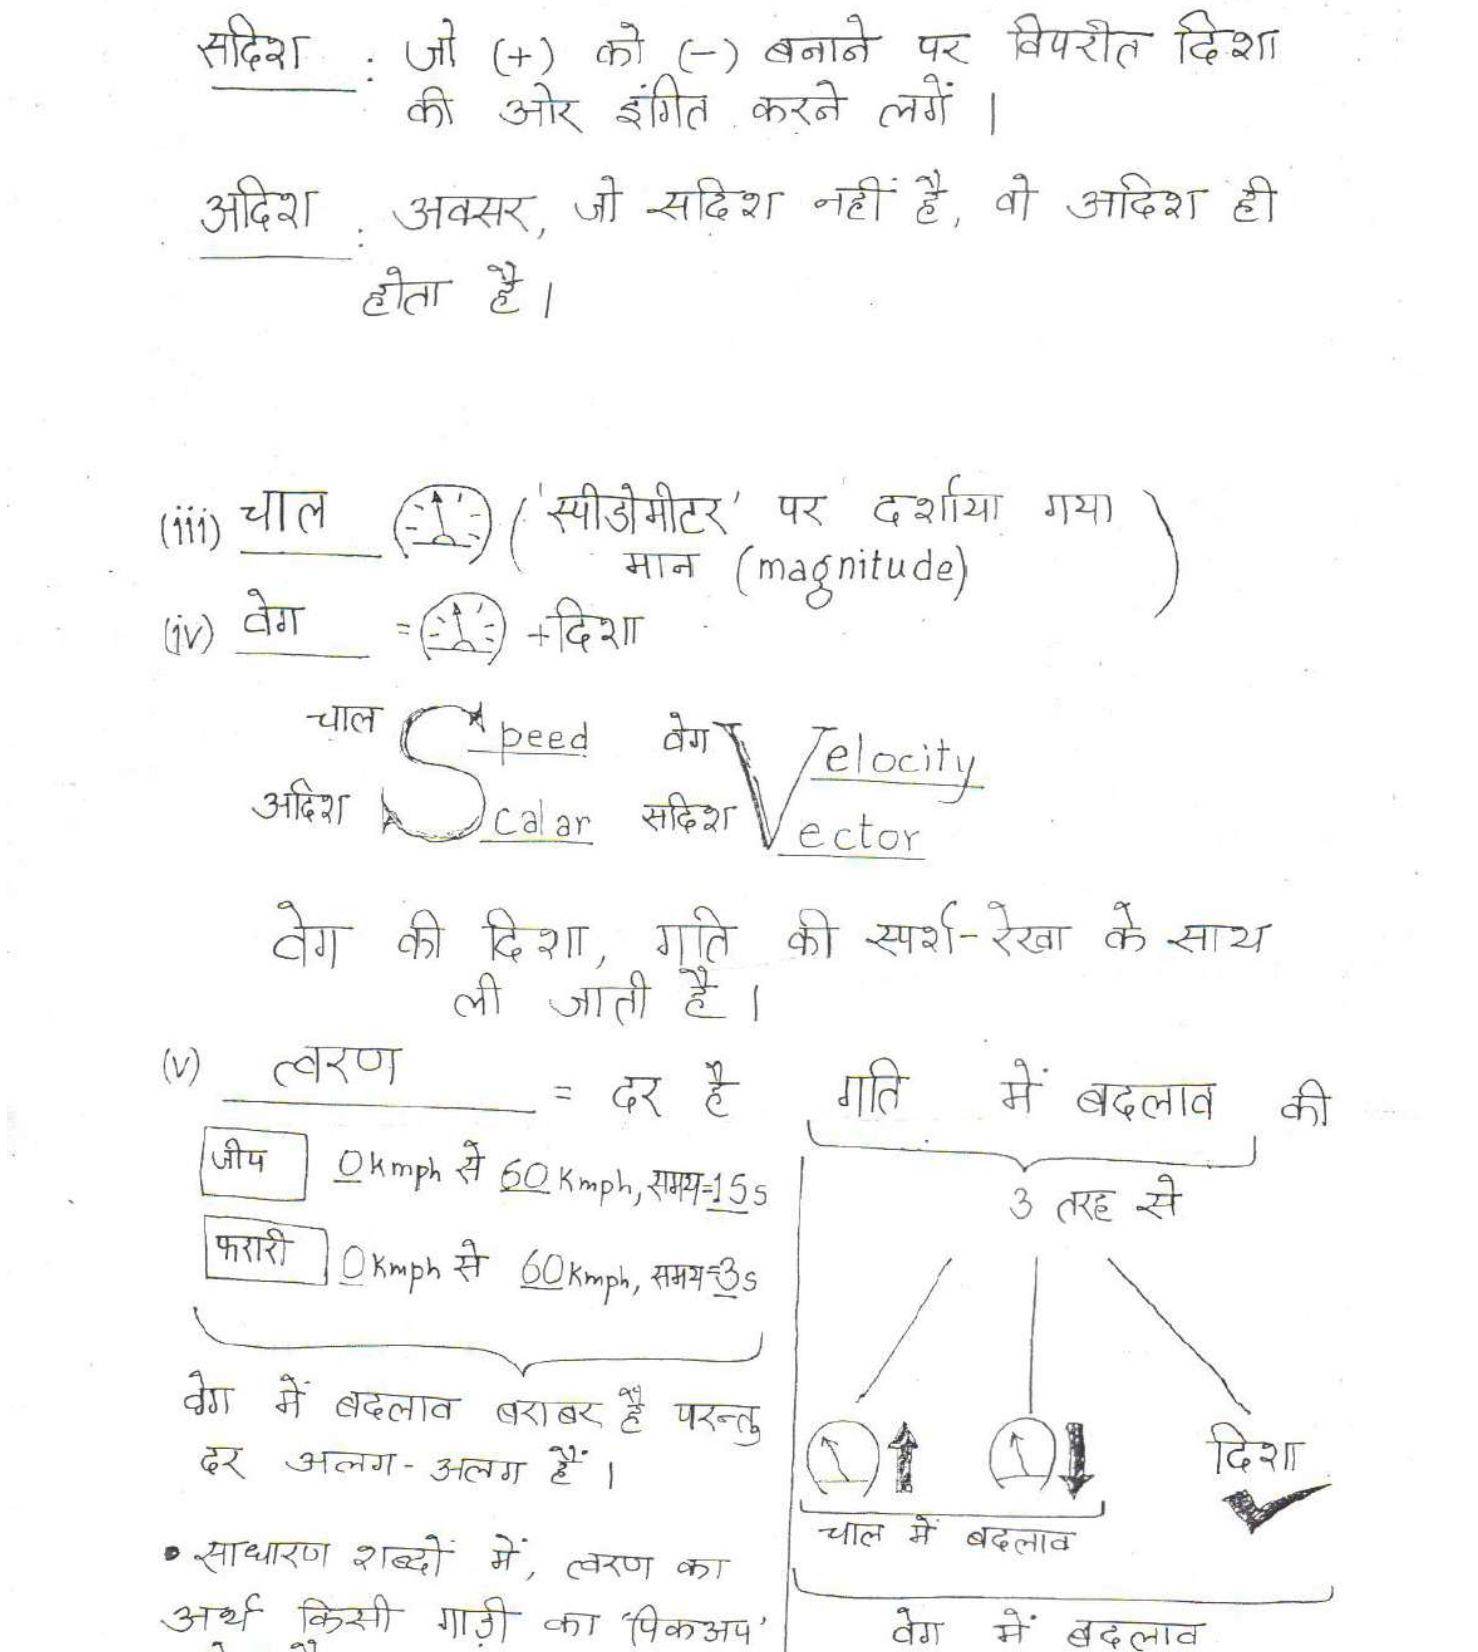 सदिश : जो (+) को (-) बनाने पर विपरीत दिशा
की ओर इंगित करने लगें |
अदिश : अक्सर, जो सदिश नहीं है, वो अदिश ही
होता है |
(iii) चाल ( 'स्पीडोमीटर' पर दर्शाया गया
मान (magnitude) )
(iv) वेग = + दिशा
चाल Speed वेग Velocity
अदिश Scalar सदिश Vector
वेग की दिशा, गति की स्पर्श-रेखा के साथ
ली जाती है |
(v) त्वरण = दर है गति में बदलाव की
जीप 0 Kmph से 60 Kmph, समय=15s
3 तरह से
फरारी 0 Kmph से 60 Kmph, समय=3s
वेग में बदलाव बराबर है परन्तु
दर अलग-अलग हैं |
दिशा
चाल में बदलाव
• साधारण शब्दों में, त्वरण का
अर्थ किसी गाड़ी का 'पिकअप'
वेग में बदलाव